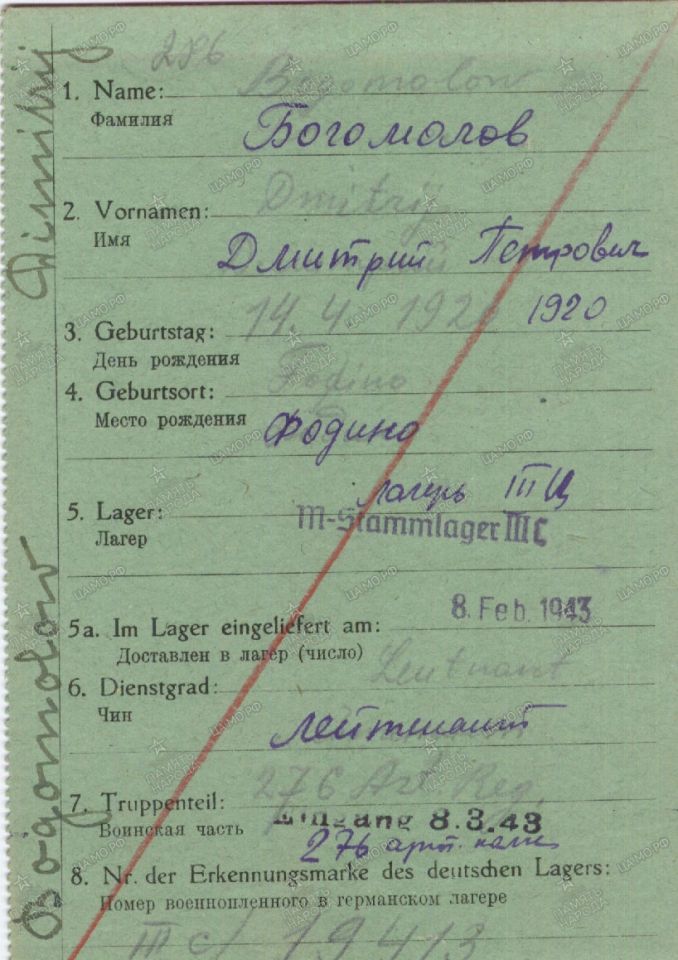 Bogomolow Dimitrij
286
1. Name: Bogomolow
Фамилия Богомолов
2. Vornamen: Dmitrij
Имя Дмитрий Петрович
3. Geburtstag: 14. 4. 1920 1920
День рождения
4. Geburtsort: Fodino
Место рождения Фодино
5. Lager: лагерь III Ц
Лагер M-Stammlager III C
5a. Im Lager eingeliefert am: 8. Feb. 1943
Доставлен в лагер (число)
6. Dienstgrad: Leutnant
Чин лейтенант
7. Truppenteil: 276 Art. Reg.
Воинская часть Eingang 8.3.43
276 арт. полк
8. Nr. der Erkennungsmarke des deutschen Lagers:
Номер военнопленного в германском лагере
III C/ 19413